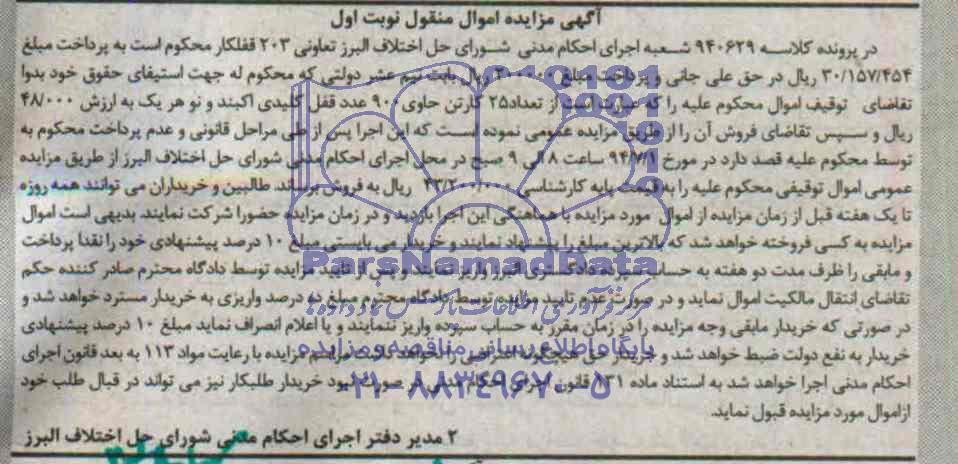 آگهی مزایده اموال منقول نوبت اول
در پرونده کلاسه ۹۴۰۶۲۹ شعبه اجرای احکام مدنی شورای حل اختلاف البرز تعاونی ۲۰۳ قفلکار محکوم است به پرداخت مبلغ
۳۰/۱۵۷/۴۵۴ ریال در حق علی جانی و پرداخت مبلغ ریال بابت نیم عشر دولتی که محکوم له جهت استیفای حقوق خود بدوا
تقاضای توقیف اموال محکوم علیه را که عبارت است از تعداد ۲۵ کارتن حاوی ۹۰۰ عدد قفل کلیدی آکبند و نو هر یک به ارزش ۴۸/۰۰۰
ریال و سپس تقاضای فروش آن را از طریق مزایده عمومی نموده است که این اجرا پس از طی مراحل قانونی و عدم پرداخت محکوم به
توسط محکوم علیه قصد دارد در مورخ ۹۴/۷/۱ ساعت ۸ الی ۹ صبح در محل اجرای احکام مدنی شورای حل اختلاف البرز از طریق مزایده
عمومی اموال توقیفی محکوم علیه را به قیمت پایه کارشناسی ۴۳/۲۰۰/۰۰۰ ریال به فروش برساند. طالبین و خریداران می توانند همه روزه
تا یک هفته قبل از زمان مزایده از اموال مورد مزایده با هماهنگی این اجرا بازدید و در زمان مزایده حضورا شرکت نمایند. بدیهی است اموال
مزایده به کسی فروخته خواهد شد که بالاترین مبلغ را پیشنهاد نمایند و خریدار می بایستی مبلغ ۱۰ درصد پیشنهادی خود را نقدا پرداخت
و مابقی را ظرف مدت دو هفته به حساب سپرده دادگستری البرز واریز نمایند و پس از تایید مزایده توسط دادگاه محترم صادر کننده حکم
تقاضای انتقال مالکیت اموال نماید و در صورت عدم تایید مزایده توسط دادگاه محترم مبلغ ده درصد واریزی به خریدار مسترد خواهد شد و
در صورتی که خریدار مابقی وجه مزایده را در زمان مقرر به حساب سپرده واریز ننمایند و یا اعلام انصراف نماید مبلغ ۱۰ درصد پیشنهادی
خریدار به نفع دولت ضبط خواهد شد و خریدار حق هیچگونه اعتراضی را نخواهد داشت مراسم مزایده با رعایت مواد ۱۱۳ به بعد قانون اجرای
احکام مدنی اجرا خواهد شد به استناد ماده ۱۳۱ قانون اجرای احکام مدنی در صورت نبود خریدار طلبکار نیز می تواند در قبال طلب خود
ازاموال مورد مزایده قبول نماید.
۲ مدیر دفتر اجرای احکام مدنی شورای حل اختلاف البرز
ParsNamadData
مرکز فرآوری اطلاعات پارس نماد داده ها
پایگاه اطلاع رسانی مناقصه و مزایده
۰۲۱-۸۸۳۴۹۶۷۰-۵